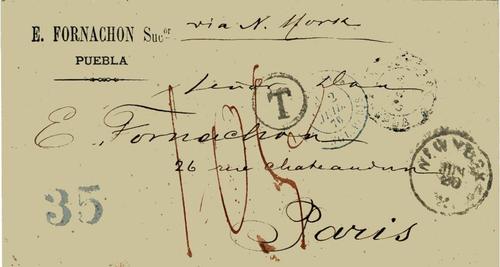 E. FORNACHON Sucor
PUEBLA
via N. York
Señor Don
T
E. Fornachon
26 rue chateaudun
Paris
NEW YORK
JUN
20
35
105